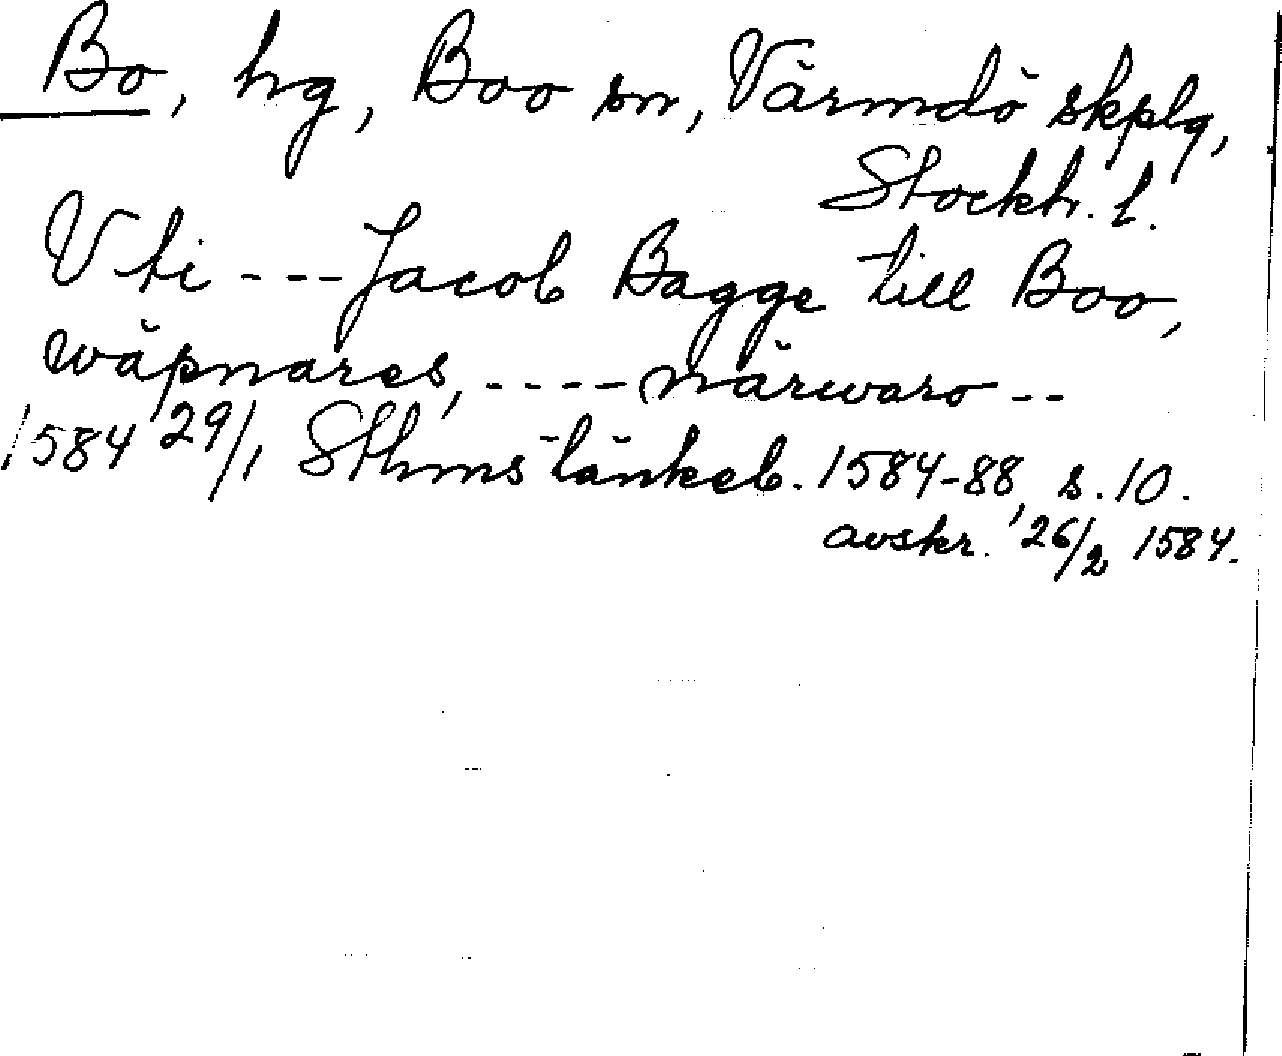 Bo, hg, Boo sn, Värmdö skplg,
Stockh. l.
Vti --- Jacob Bagge till Boo,
wäpnares, ---- närwaro --
1584 29/1, Sthms tänkeb. 1584-88, s. 10.
avskr. 26/2 1584.